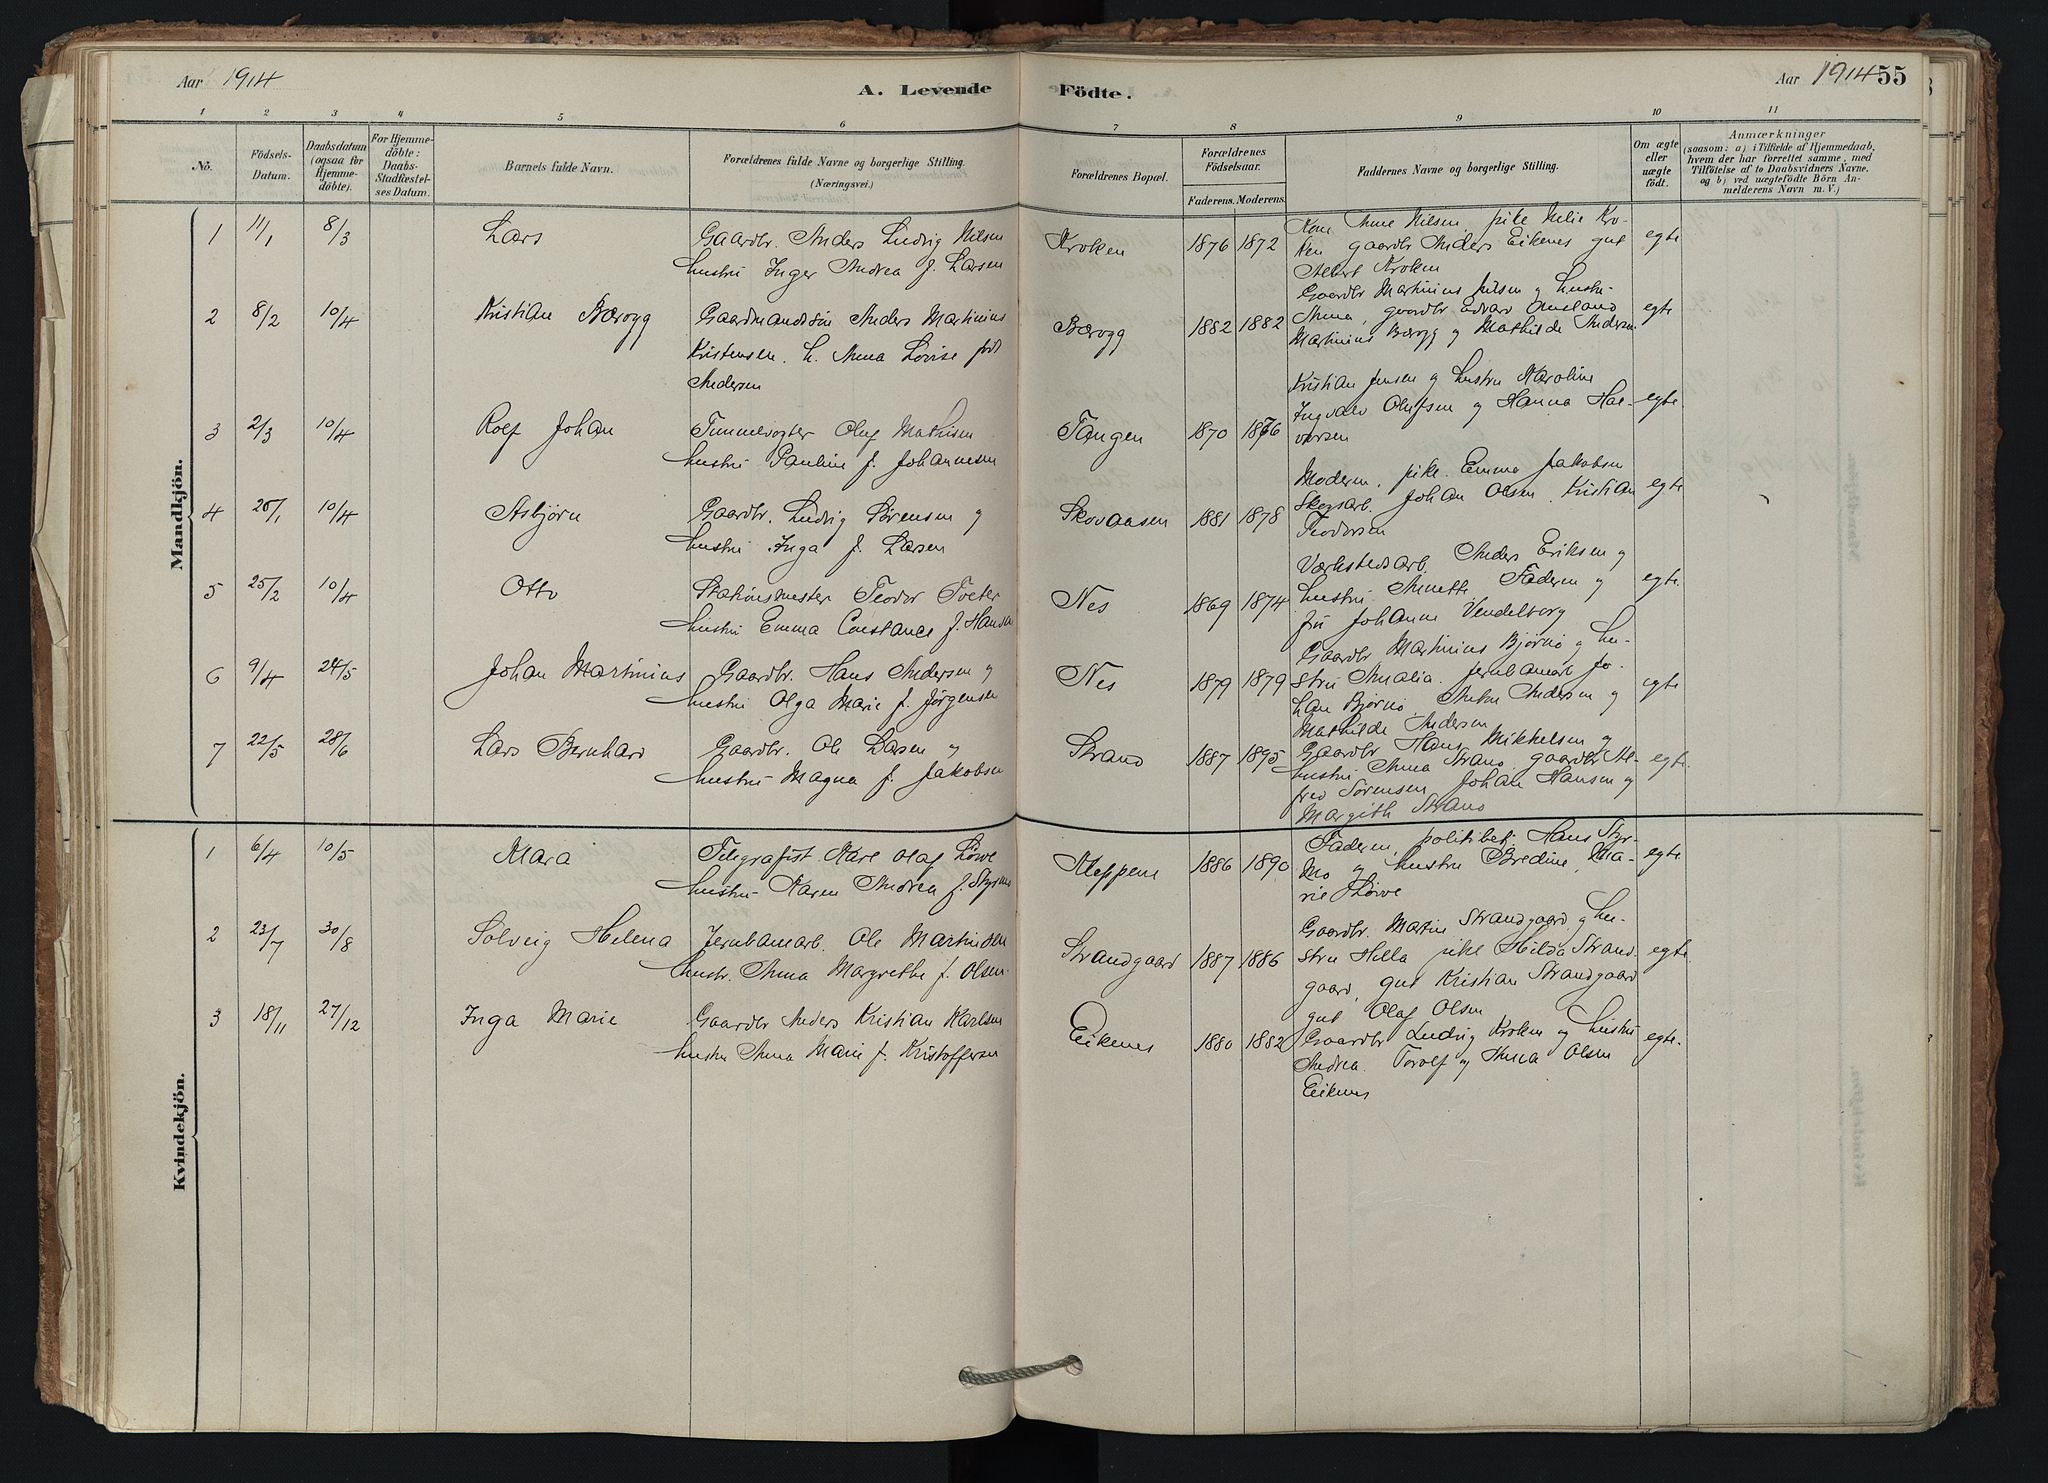 Aar 1914
A. Levende Födte.
Aar 1914 55
1 2 3 4 5 6 7 8 9 10 11
No.
Födsels-Datum.
Daabsdatum (ogsaa for Hjemme-döbte).
For Hjemme-döbte: Daabs-Stadfæstel-ses Datum.
Barnets fulde Navn.
Forældrenes fulde Navne og borgerlige Stilling.
(Næringsvei.)
Forældrenes Bopæl.
Forældrenes Födselsaar.
Faderens. Moderens.
Faddernes Navne og borgerlige Stilling.
Om ægte eller uægte födt.
Anmærkninger
(saasom: a) i Tilfælde af Hjemmedaab, hvem der har forrettet samme, med Tilföielse af to Daabsvidners Navne. og b) ved uægtefödte Börn An-melderens Navn m. V.)
Mandkjön.
1 11/1 8/3 Lars Gaardbr. Anders Ludvig Nilsen
hustru Inger Andrea f. Larsen
Kroken 1876 1872
Kone Anne Nilsen, pike Kro-
ken gaardbr Anders Eikenes gut
Albert Kroken
egte
2 8/2 10/4 Kristian Bærøgg Gaardmandssøn Anders Martinius
Kristensen. h. Anna Lovise født
Andersen
Bærøgg 1882 1882
Gaardbr Martinius Nilsen og hustru
Anna, gaardbr Edvard
Martinius Bærøgg og Mathilde Andersen
egte
3 2/3 10/4 Rolf Johan Tunnelvogter Oluf Mathisen
hustru Pauline f. Johannesen
Tangen 1870 1876
Kristian Jensen og hustru Karoline
Ingvald Olufsen og Hanna Hal-
vorsen
egte
4 25/1 10/4 Asbjørn Gaardbr. Ludvig Sørensen og
hustru Inga f. Larsen
Skovaasen 1881 1878
Moderen, pike Emma Jakobsen
Skogsarb. Johan Olsen, Kristian
Teodorsen
egte
5 25/2 10/4 Otto Stationsmester Teodor Tveter
hustru Emma Constance f. Hansen
Nes 1869 1874
Værkstedsarb. Anders Eriksen og
hustru Anette, Faderen og
fru Johanne Vendelborg
egte
6 9/4 24/5 Johan Martinius Gaardbr. Hans Andersen og
hustru Olga Marie f. Jørgensen
Nes 1879 1879
Gaardbr Martinius Bjørnø og hu-
stru Amalia. jernbanearb Jo-
han Bjørnø, Andersen og
Mathilde Andersen
egte
7 22/5 28/6 Lars Bernhard Gaardbr. Ole Larsen og
hustru Magna f. Jakobsen
Strand 1887 1895
Gaardbr Hans Mikkelsen og
hustru Anna Strand, gaardbr Al-
fred Sørensen Johan Hansen og
Margith Strand
egte
Kvindekjön.
1 6/4 10/5 Mara Telegrafist Kare Olaf Løwe
hustru Karen Andrea f. Styrmo
Kleppene 1886 1890
Faderen, politibetj. Hans Styr-
mo og hustru Bredine, Ma-
rie Løwe
egte
2 23/7 30/8 Solveig Helena Jernbanearb. Ole Martinsen
hustr. Anna Margrethe f. Olsen
Strandgaard 1887 1886
Gaardbr. Martin Strandgaard og hu-
stru Hella pike Hilda Strand-
gaard, gut Kristian Strandgaard
gut Olaf Olsen
egte
3 18/11 27/12 Inga Marie Gaardbr Anders Kristian Karlsen
hustru Anna Marie f. Kristoffersen
Eikenes 1880 1882
Gaardbr Ludvig Kroken og hustru
Andrea. Torolf og Anna Olsen
Eikenes
egte